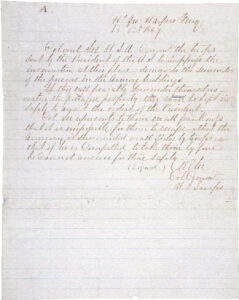 A.
Hd Qrs Harpers Ferry
18 Oct 1859
Colonel Lee U.S.A. Comm'd the troops
sent by the President of the U.S. to suppress the
insurrection at this place, demands the surrender
of the persons in the armory buildings.
If they will peaceably surrender themselves &
restore the pillaged property, they shall be kept in
safety to await the orders of the President.
Col Lee represents to them in all frankness
that it is impossible for them to escape, that the
armory is surrounded on all sides by troops, &
that if he is compelled to take them by force
he cannot answer for their safety.
(signed) R E Lee
Col Comm'd
U.S. Troops